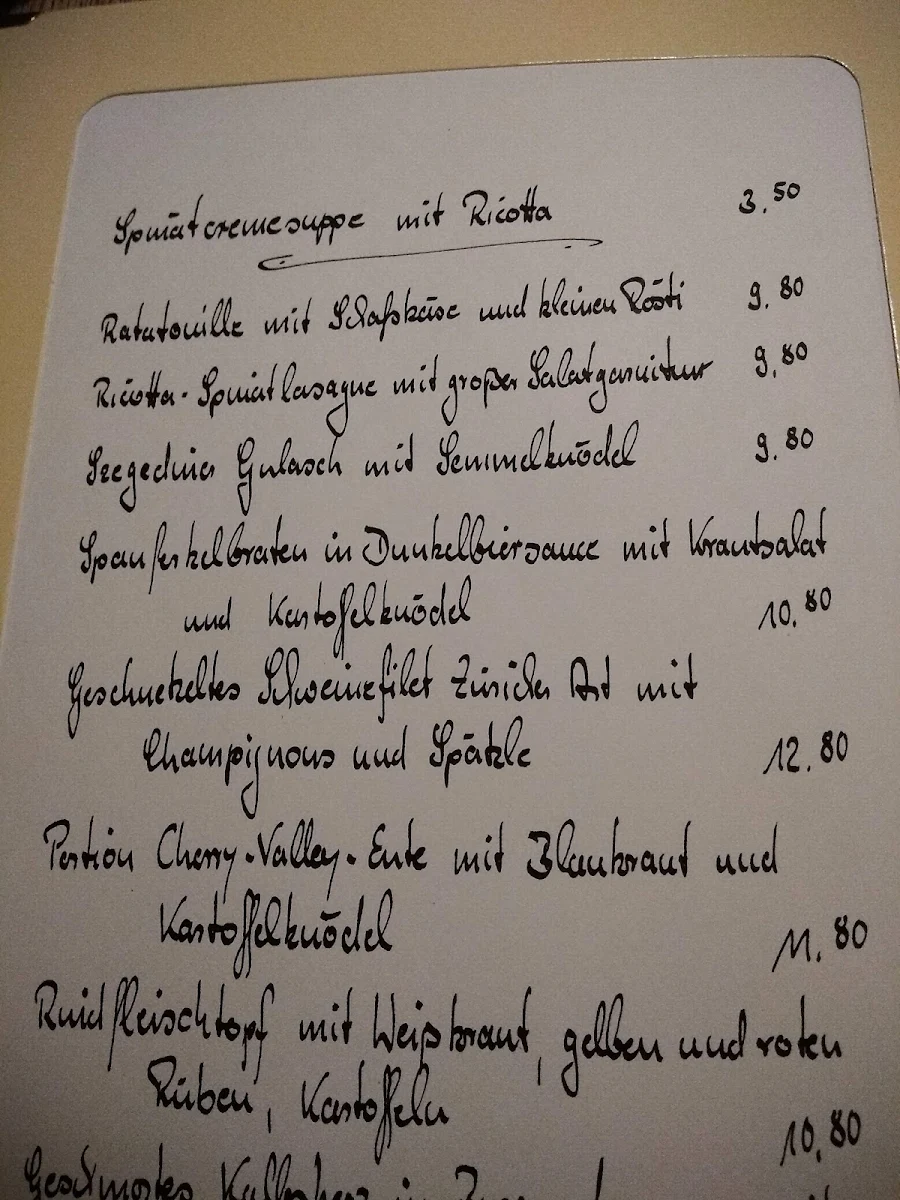 Spinatcremesuppe mit Ricotta 3.50
Ratatouille mit Schafskäse und kleinen Rösti 9.80
Ricotta-Spinatlasagne mit großer Salatgarnitur 9.80
Szegediner Gulasch mit Semmelknödel 9.80
Spanferkelbraten in Dunkelbiersauce mit Krautsalat
und Kartoffelknödel 10.80
Geschnetzeltes Schweinefilet Züricher Art mit
Champignons und Spätzle 12.80
Portion Cherry-Valley-Ente mit Blaukraut und
Kartoffelknödel 11.80
Rindfleischtopf mit Weißkraut, gelben und roten
Rüben, Kartoffeln 10.80
Geschmortes Kalbsherz in